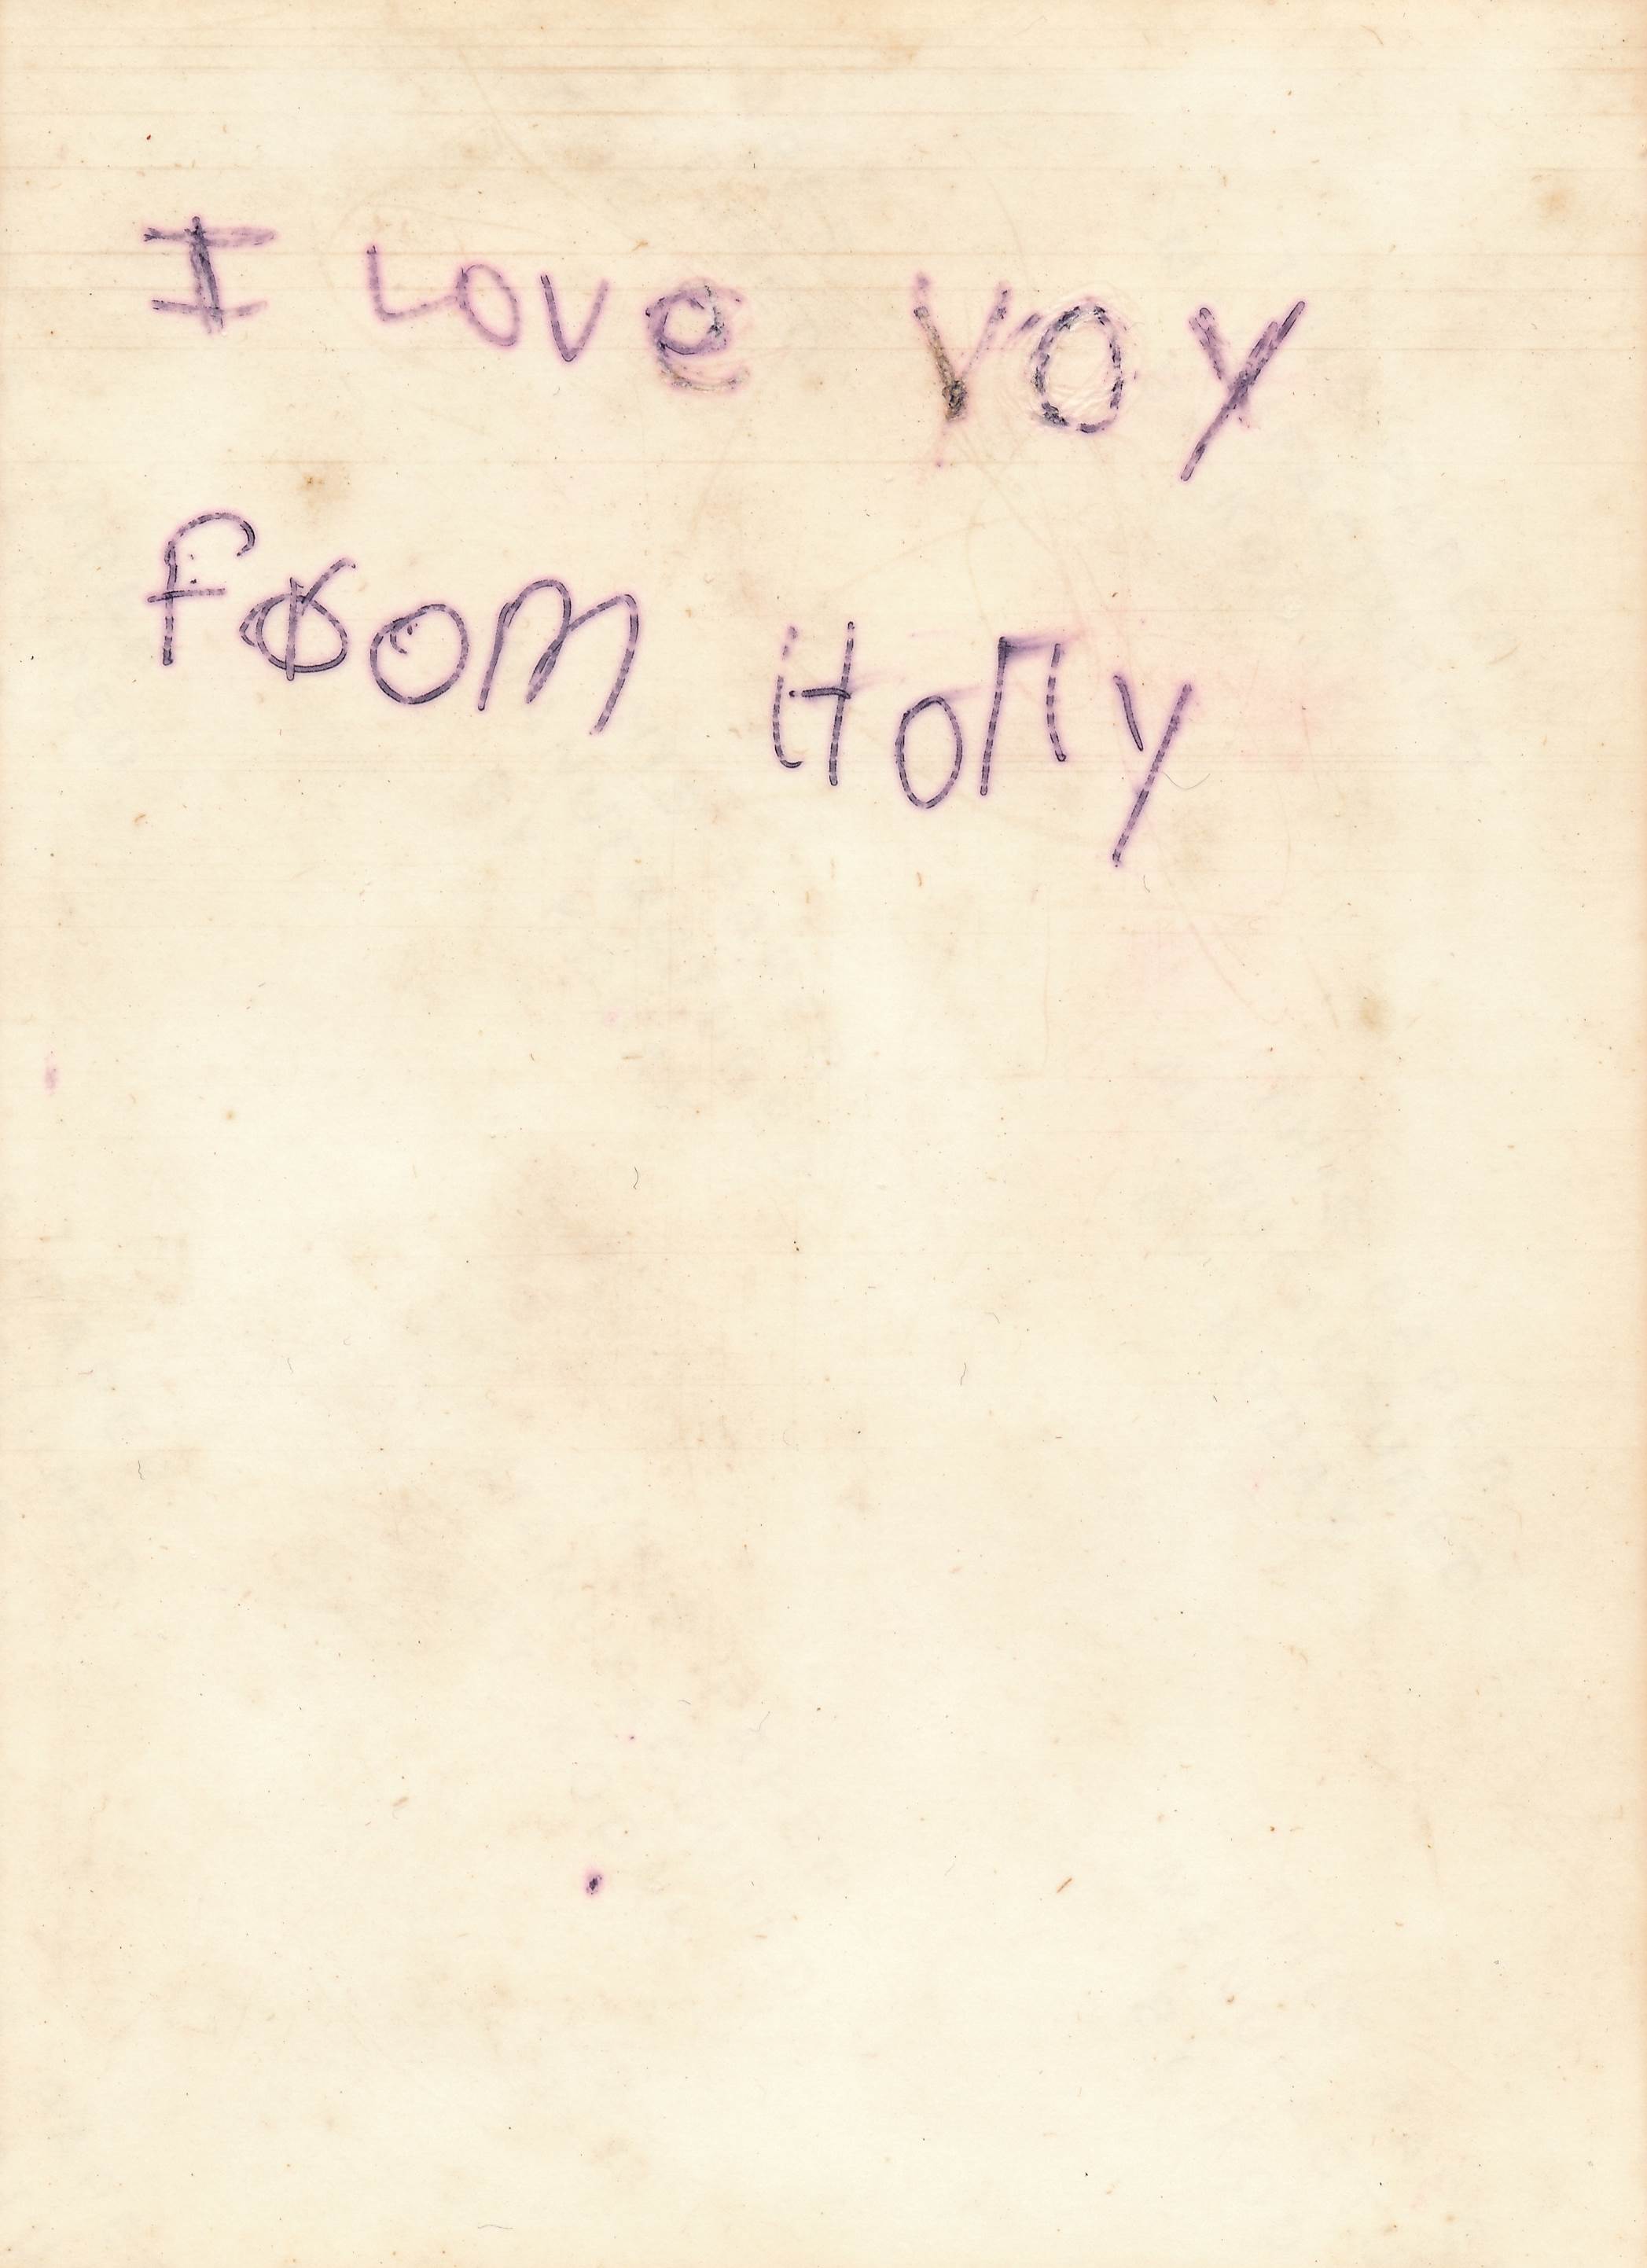 I Love yoy
from Holly